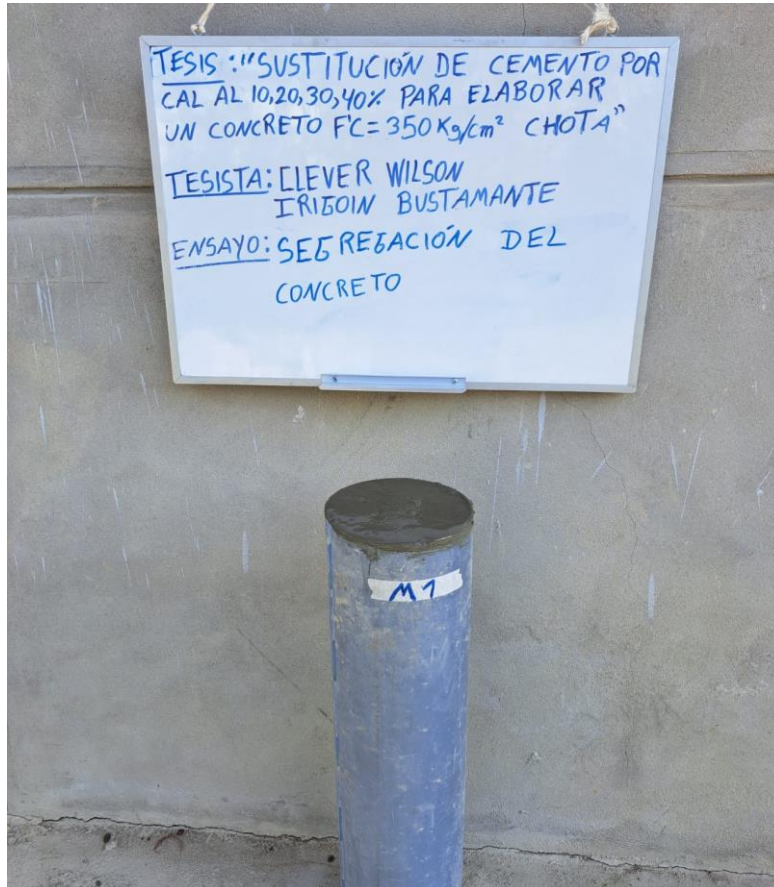 TESIS: "SUSTITUCIÓN DE CEMENTO POR
CAL AL 10,20,30,40% PARA ELABORAR
UN CONCRETO F'C=350Kg/cm² CHOTA"
TESISTA: CLEVER WILSON
IRIGOIN BUSTAMANTE
ENSAYO: SEGREGACIÓN DEL
CONCRETO
M1